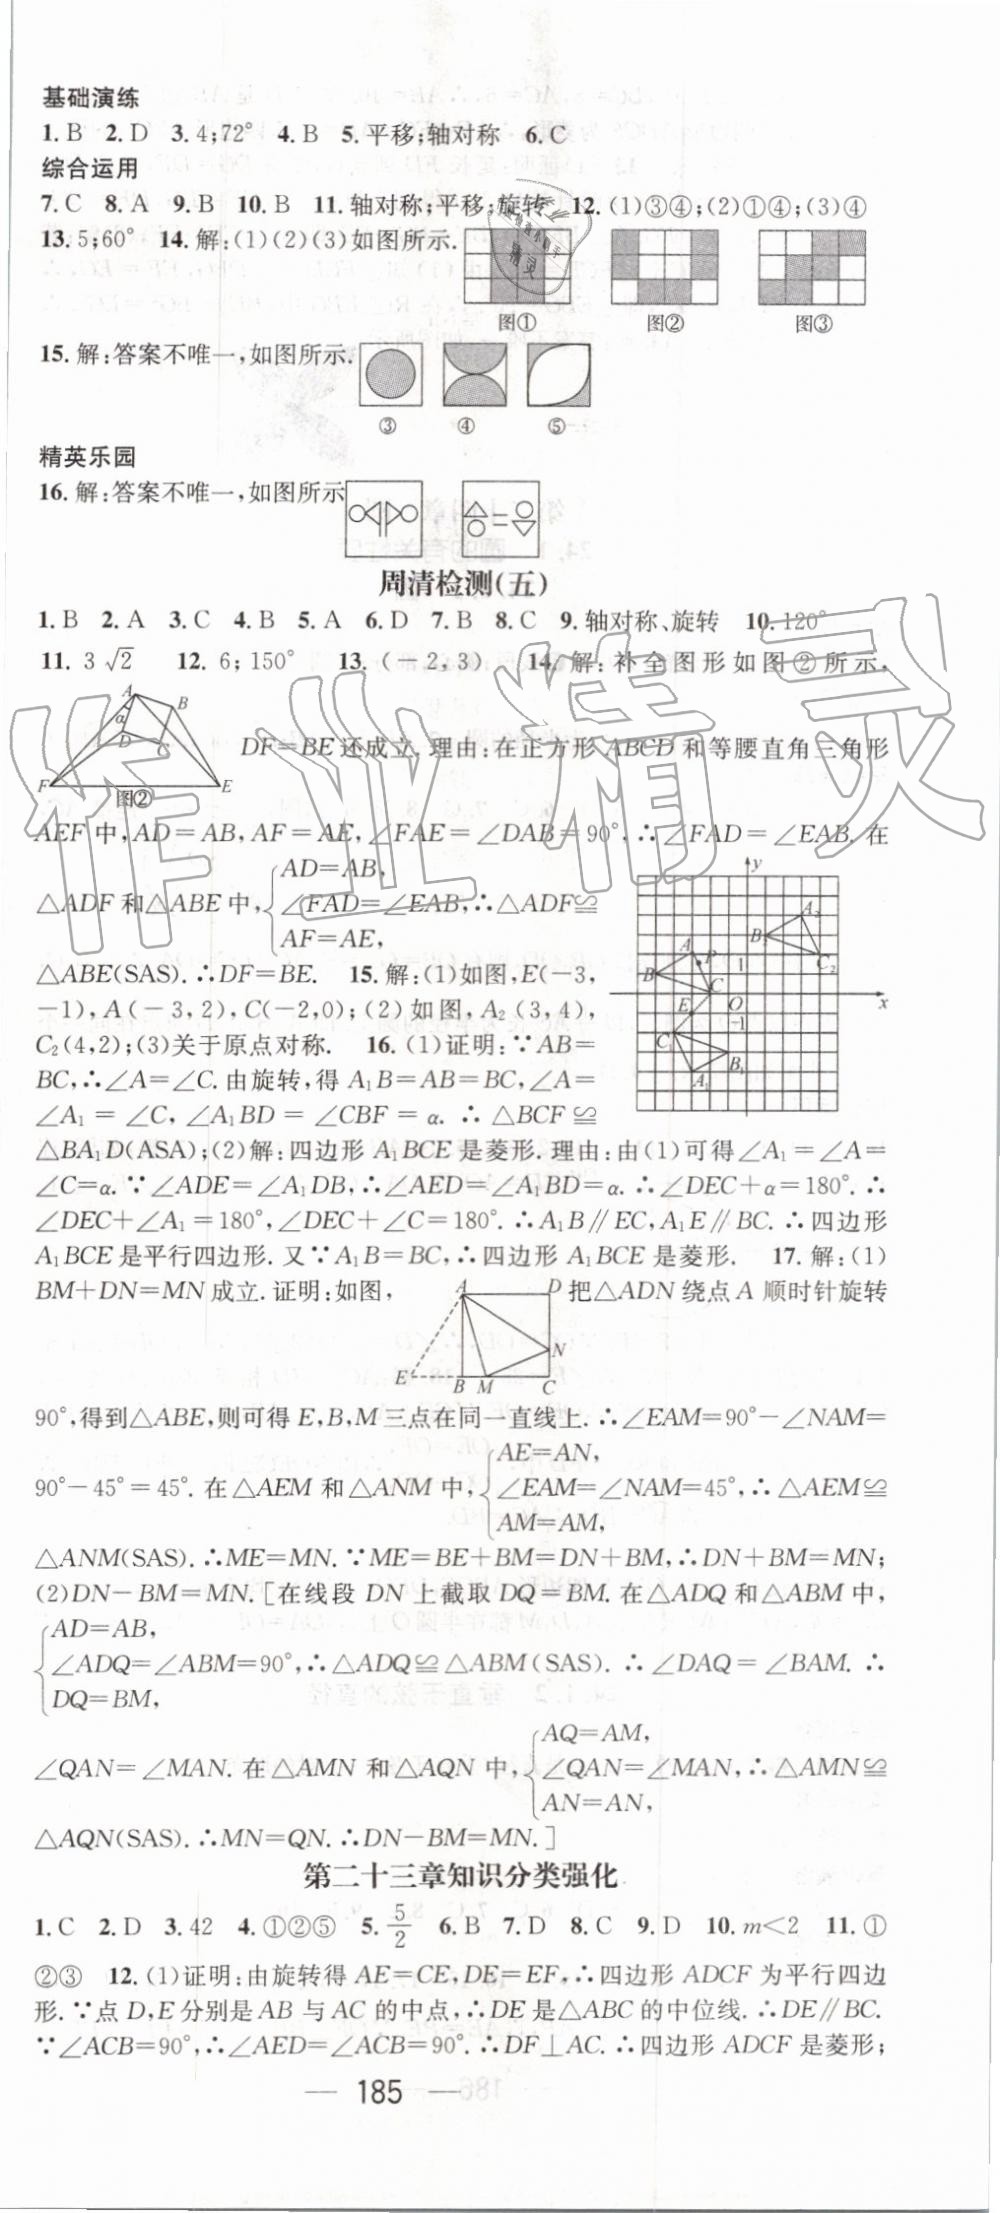 基础演练
1. B 2. D 3. 4;72° 4. B 5. 平移;轴对称 6. C
综合运用
7. C 8. A 9. B 10. B 11. 轴对称;平移;旋转 12. (1)③④;(2)①④;(3)④
13. 5;60° 14. 解:(1)(2)(3)如图所示.
图① 图② 图③
15. 解:答案不唯一,如图所示.
③ ④ ⑤
精英乐园
16. 解:答案不唯一,如图所示
周清检测(五)
1. B 2. A 3. C 4. B 5. A 6. D 7. B 8. C 9. 轴对称、旋转 10. 120°
11. 3√2 12. 6;150° 13. (-2,3) 14. 解:补全图形如图②所示,
A B α D C F E
图②
DF=BE还成立.理由:在正方形ABCD和等腰直角三角形
AEF中,AD=AB,AF=AE,∠FAE=∠DAB=90°,∴∠FAD=∠EAB.在
AD=AB,
△ADF和△ABE中,∠FAD=∠EAB,∴△ADF≌
AF=AE,
△ABE(SAS).∴DF=BE. 15. 解:(1)如图,E(-3,
-1),A(-3,2),C(-2,0);(2)如图,A₂(3,4),
C₂(4,2);(3)关于原点对称. 16. (1)证明:∵AB=
BC,∴∠A=∠C.由旋转,得A₁B=AB=BC,∠A=
∠A₁=∠C,∠A₁BD=∠CBF=α.∴△BCF≌
y A₂ B₂ C₂ A P B C 1 O x E -1 C₁ B₁ A₁
△BA₁D(ASA);(2)解:四边形A₁BCE是菱形.理由:由(1)可得∠A₁=∠A=
∠C=α.∵∠ADE=∠A₁DB,∴∠AED=∠A₁BD=α.∴∠DEC+α=180°.∴
∠DEC+∠A₁=180°,∠DEC+∠C=180°.∴A₁B∥EC,A₁E∥BC.∴四边形
A₁BCE是平行四边形.又∵A₁B=BC,∴四边形A₁BCE是菱形. 17. 解:(1)
BM+DN=MN成立.证明:如图,把△ADN绕点A顺时针旋转
A D N E B M C
90°,得到△ABE,则可得E,B,M三点在同一直线上.∴∠EAM=90°-∠NAM=
AE=AN,
90°-45°=45°.在△AEM和△ANM中,∠EAM=∠NAM=45°,∴△AEM≌
AM=AM,
△ANM(SAS).∴ME=MN.∵ME=BE+BM=DN+BM,∴DN+BM=MN;
(2)DN-BM=MN.[在线段DN上截取DQ=BM.在△ADQ和△ABM中,
AD=AB,
∠ADQ=∠ABM=90°,∴△ADQ≌△ABM(SAS).∴∠DAQ=∠BAM.∴
DQ=BM,
AQ=AM,
∠QAN=∠MAN.在△AMN和△AQN中,∠QAN=∠MAN,∴△AMN≌
AN=AN,
△AQN(SAS).∴MN=QN.∴DN-BM=MN.]
第二十三章知识分类强化
1. C 2. D 3. 42 4. ①②⑤ 5. 5/2 6. B 7. D 8. C 9. D 10. m<2 11. ①
②③ 12. (1)证明:由旋转得AE=CE,DE=EF,∴四边形ADCF为平行四边
形.∵点D,E分别是AB与AC的中点,∴DE是△ABC的中位线.∴DE∥BC.
∵∠ACB=90°,∴∠AED=∠ACB=90°.∴DF⊥AC.∴四边形ADCF是菱形;
— 185 —
作业精灵